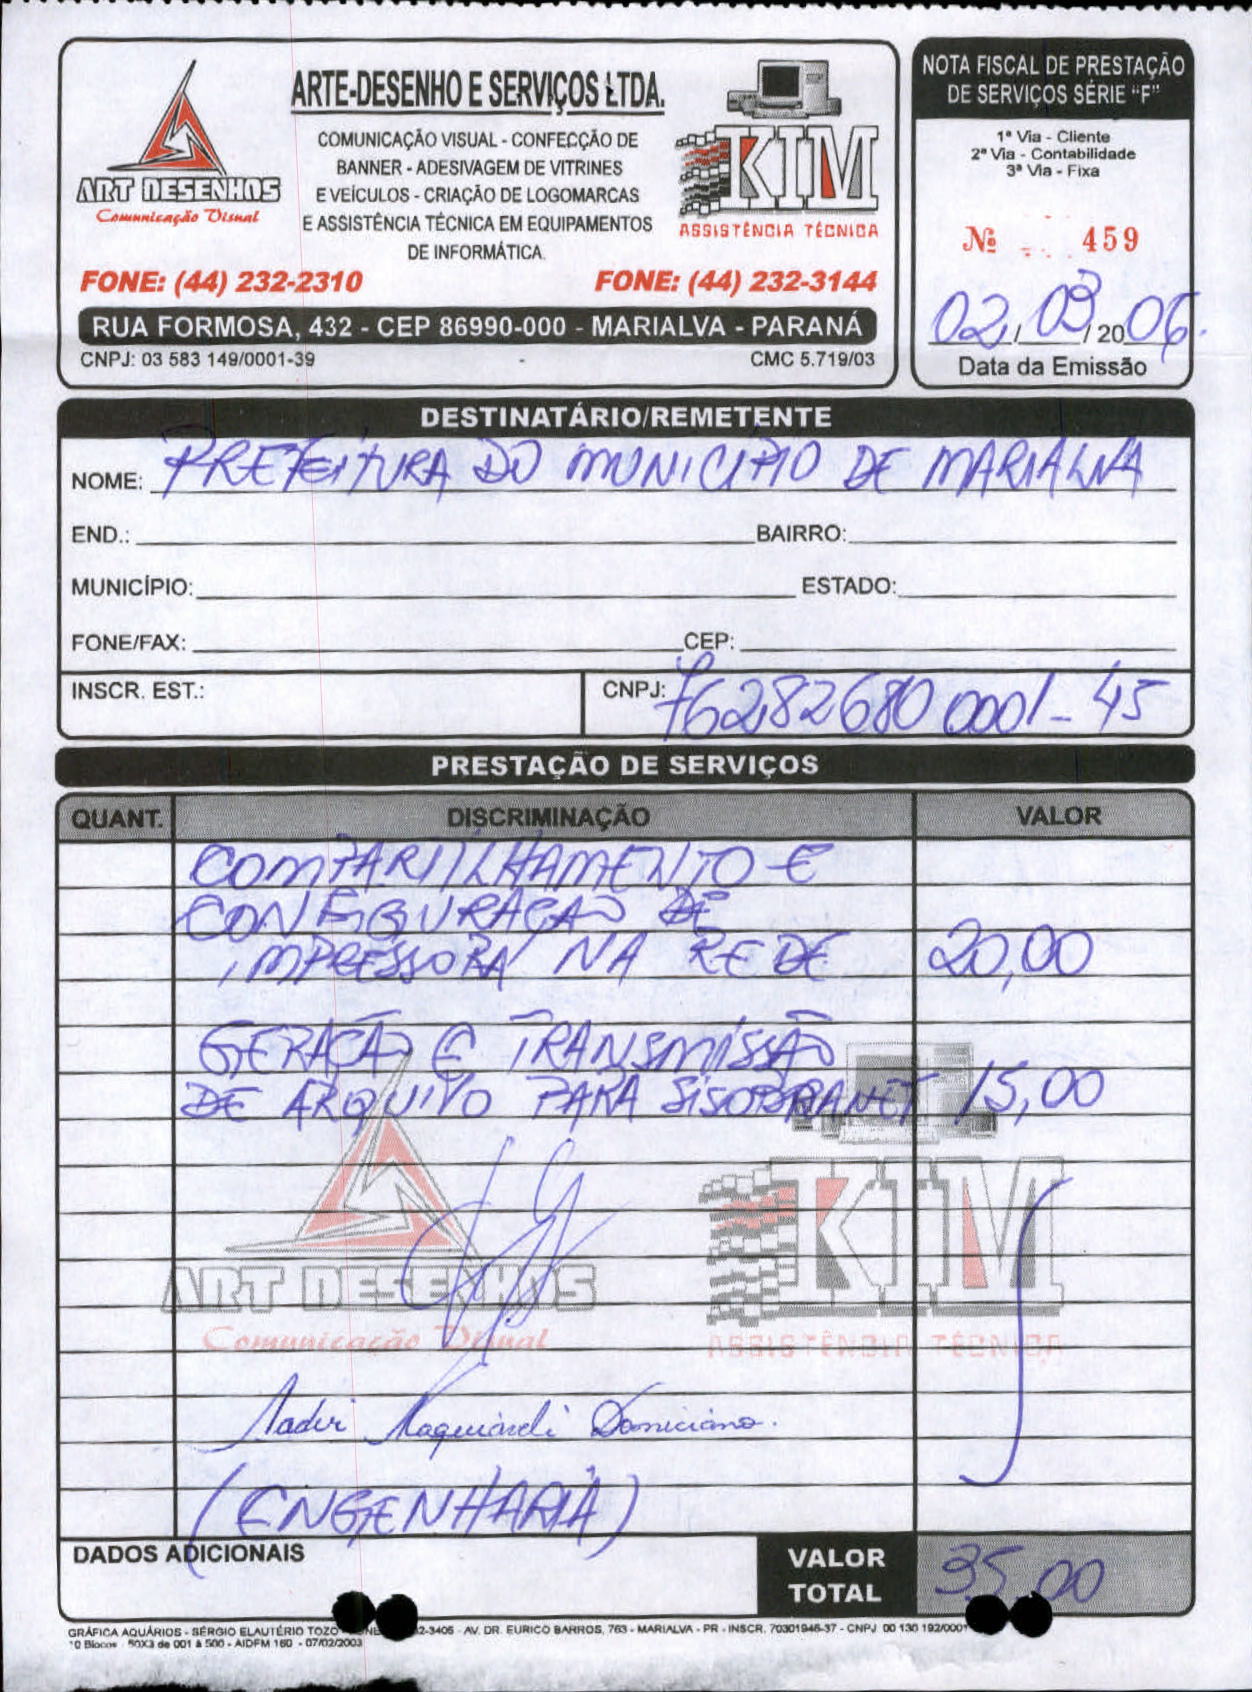 ARTE-DESENHO E SERVIÇOS LTDA.
COMUNICAÇÃO VISUAL - CONFECÇÃO DE
BANNER - ADESIVAGEM DE VITRINES
E VEÍCULOS - CRIAÇÃO DE LOGOMARCAS
E ASSISTÊNCIA TÉCNICA EM EQUIPAMENTOS
DE INFORMÁTICA.
ART DESENHOS
Comunicação Visual
KIM
ASSISTÊNCIA TÉCNICA
FONE: (44) 232-2310 FONE: (44) 232-3144
RUA FORMOSA, 432 - CEP 86990-000 - MARIALVA - PARANÁ
CNPJ: 03 583 149/0001-39 CMC 5.719/03
NOTA FISCAL DE PRESTAÇÃO
DE SERVIÇOS SÉRIE "F"
1ª Via - Cliente
2ª Via - Contabilidade
3ª Via - Fixa
Nº 459
02/03/2006.
Data da Emissão
DESTINATÁRIO/REMETENTE
NOME: PREFEITURA DO MUNICÍPIO DE MARIALVA
END.: BAIRRO:
MUNICÍPIO: ESTADO:
FONE/FAX: CEP:
INSCR. EST.: CNPJ: 76282680 0001-45
PRESTAÇÃO DE SERVIÇOS
QUANT. DISCRIMINAÇÃO VALOR
COMPARTILHAMENTO E
CONFIGURAÇÃO DE
IMPRESSORA NA REDE 20,00
GERAÇÃO E TRANSMISSÃO
DE ARQUIVO PARA SISOBRANET 15,00
ART DESENHOS
Comunicação Visual
KIM
ASSISTÊNCIA TÉCNICA
(ENGENHARIA)
DADOS ADICIONAIS
VALOR
TOTAL 35,00
GRÁFICA AQUÁRIOS - SÉRGIO ELAUTÉRIO TOZO 2-3405 - AV. DR. EURICO BARROS, 763 - MARIALVA - PR - INSCR. 70301946-37 - CNPJ 00 130 192/0001
10 Blocos 50X3 de 001 à 500 - AIDFM 160 - 07/02/2003